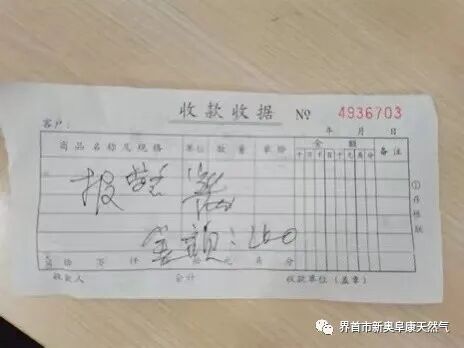 收款收据 № 4936703
客户： 年 月 日
商品名称及规格 单位 数量 单价 金额 备注
十万千百十元角分
报警器
金额：260
拾 万 仟 拾 元 角 分
收款人 会计 收款单位（盖章）
①存根联
界首市新奥阜康天然气